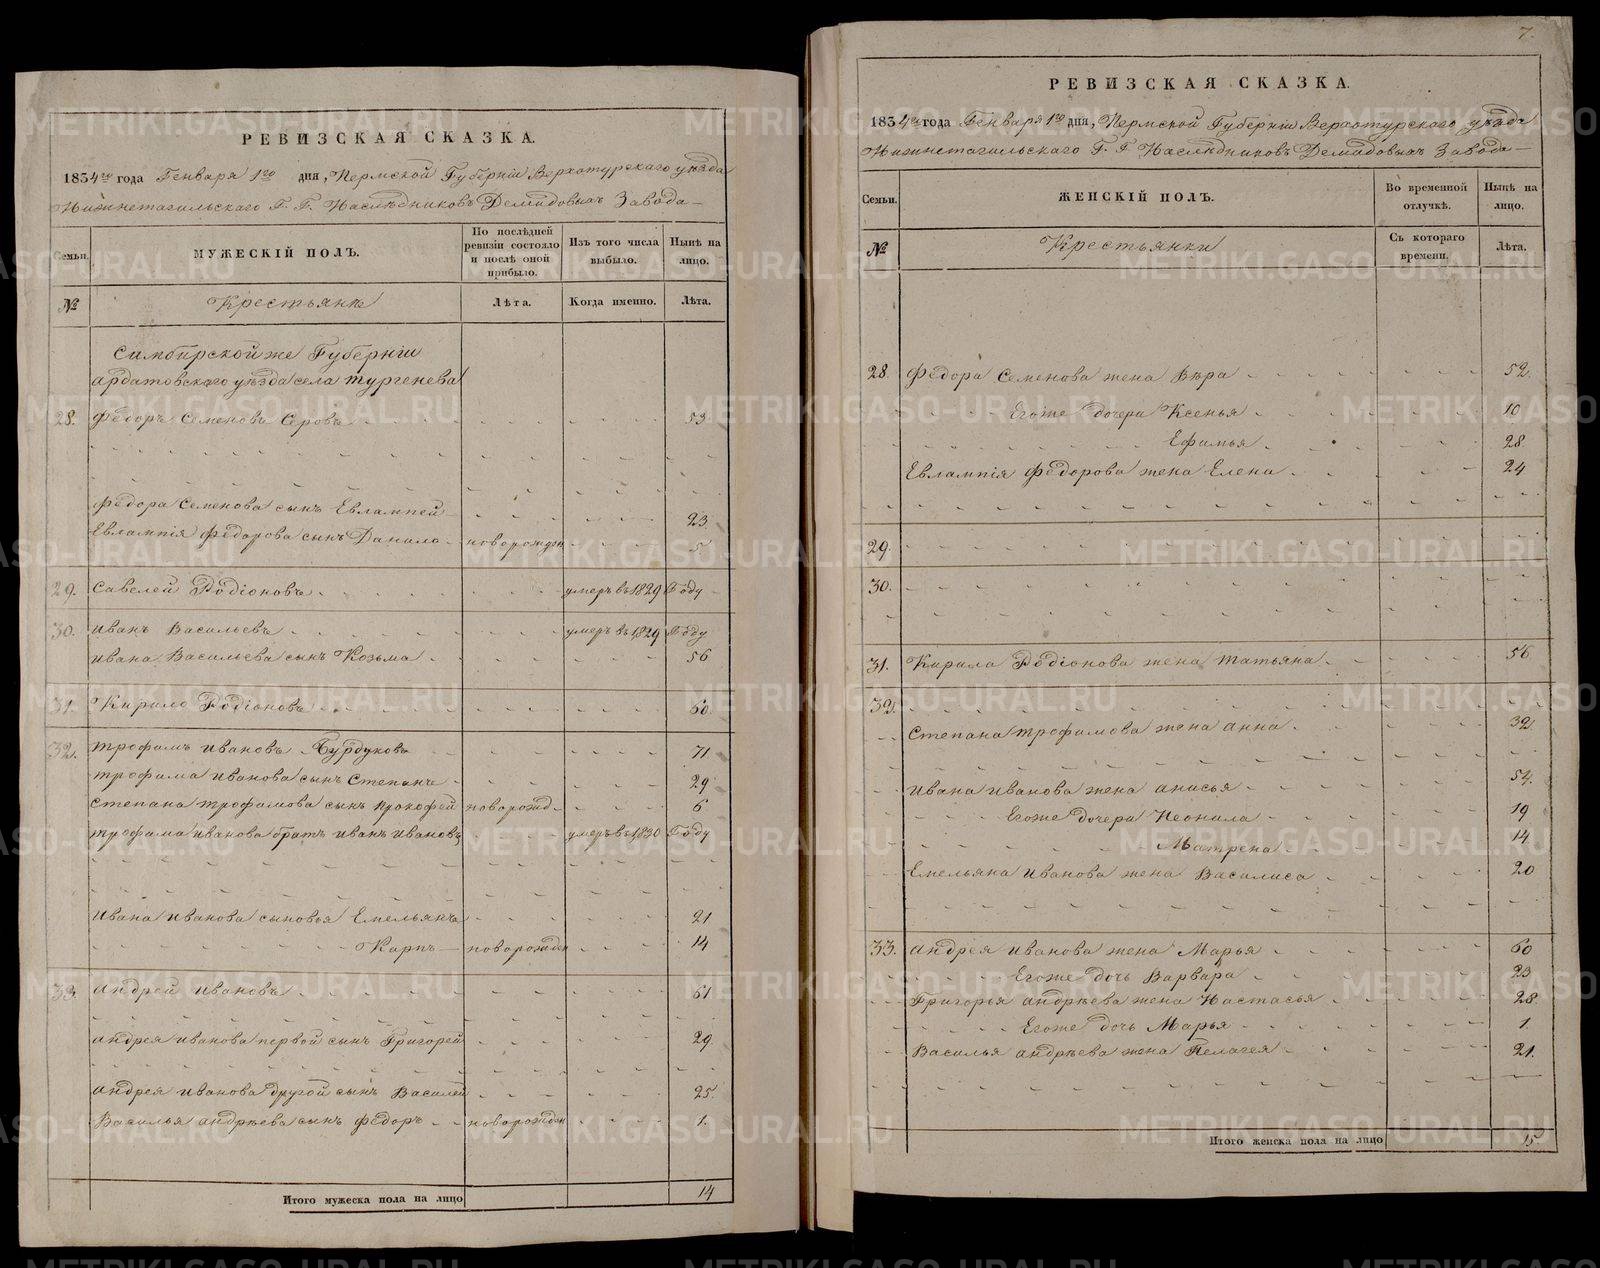 РЕВИЗСКАЯ СКАЗКА.
1834го года Генваря 1го дня, Пермской Губерніи Верхотурскаго уѣзда
Нижнетагильскаго Г. Г. Наслѣдниковъ Демидовыхъ Завода
Семьи.
МУЖЕСКІЙ ПОЛЪ.
По послѣдней ревизіи состояло и послѣ оной прибыло.
Изъ того числа выбыло.
Нынѣ на лицо.
№
Крестьяне
Лѣта.
Когда именно.
Лѣта.
Симбирской же Губерніи
Ардатовскаго уѣзда села Тургенева
28. Федоръ Семеновъ Серовъ 53
Федора Семенова сынъ Евлампей 23
Евлампія Федорова сынъ Данило новорожден 5
29. Савелей Родіоновъ умеръ въ 1829 Году
30. Иванъ Васильевъ умеръ въ 1829 Году
Ивана Васильева сынъ Козьма 56
31. Кирило Родіоновъ 60
32. Трофимъ Ивановъ Бурдуковъ 71
Трофима Иванова сынъ Степанъ 29
Степана Трофимова сынъ Прокофей новорожд 6
Трофима Иванова братъ Иванъ Ивановъ умеръ въ 1830 Году
Ивана Иванова сыновья Емельянъ 21
Карпъ новорожден 14
33. Андрей Ивановъ 61
Андрея Иванова первой сынъ Григорей 29
Андрея Иванова другой сынъ Василей 25
Василья Андрѣева сынъ Федоръ новорожден 1.
Итого мужеска пола на лицо 14
7.
РЕВИЗСКАЯ СКАЗКА.
1834го года Генваря 1го дня, Пермской Губерніи Верхотурскаго уѣзда
Нижнетагильскаго Г. Г. Наслѣдниковъ Демидовыхъ Завода
Семьи.
ЖЕНСКІЙ ПОЛЪ.
Во временной отлучкѣ.
Нынѣ на лицо.
№
Крестьянки
Съ котораго времени.
Лѣта.
28. Федора Семенова жена Вѣра 52
Егоже дочери Ксенья 10
Ефимья 28
Евлампія Федорова жена Елена 24
29.
30.
31. Кирила Родіонова жена Татьяна 56
32.
Степана Трофимова жена Анна 32
Ивана Иванова жена Анисья 54
Егоже дочери Неонила 19
Матрена 14
Емельяна Иванова жена Василиса 20
33. Андрея Иванова жена Марья 60
Егоже дочь Варвара 23
Григорья Андрѣева жена Настасья 28
Егоже дочь Марья 1.
Василья Андрѣева жена Пелагея 21.
Итого женска пола на лицо 15.
METRIKI.GASO-URAL.RU